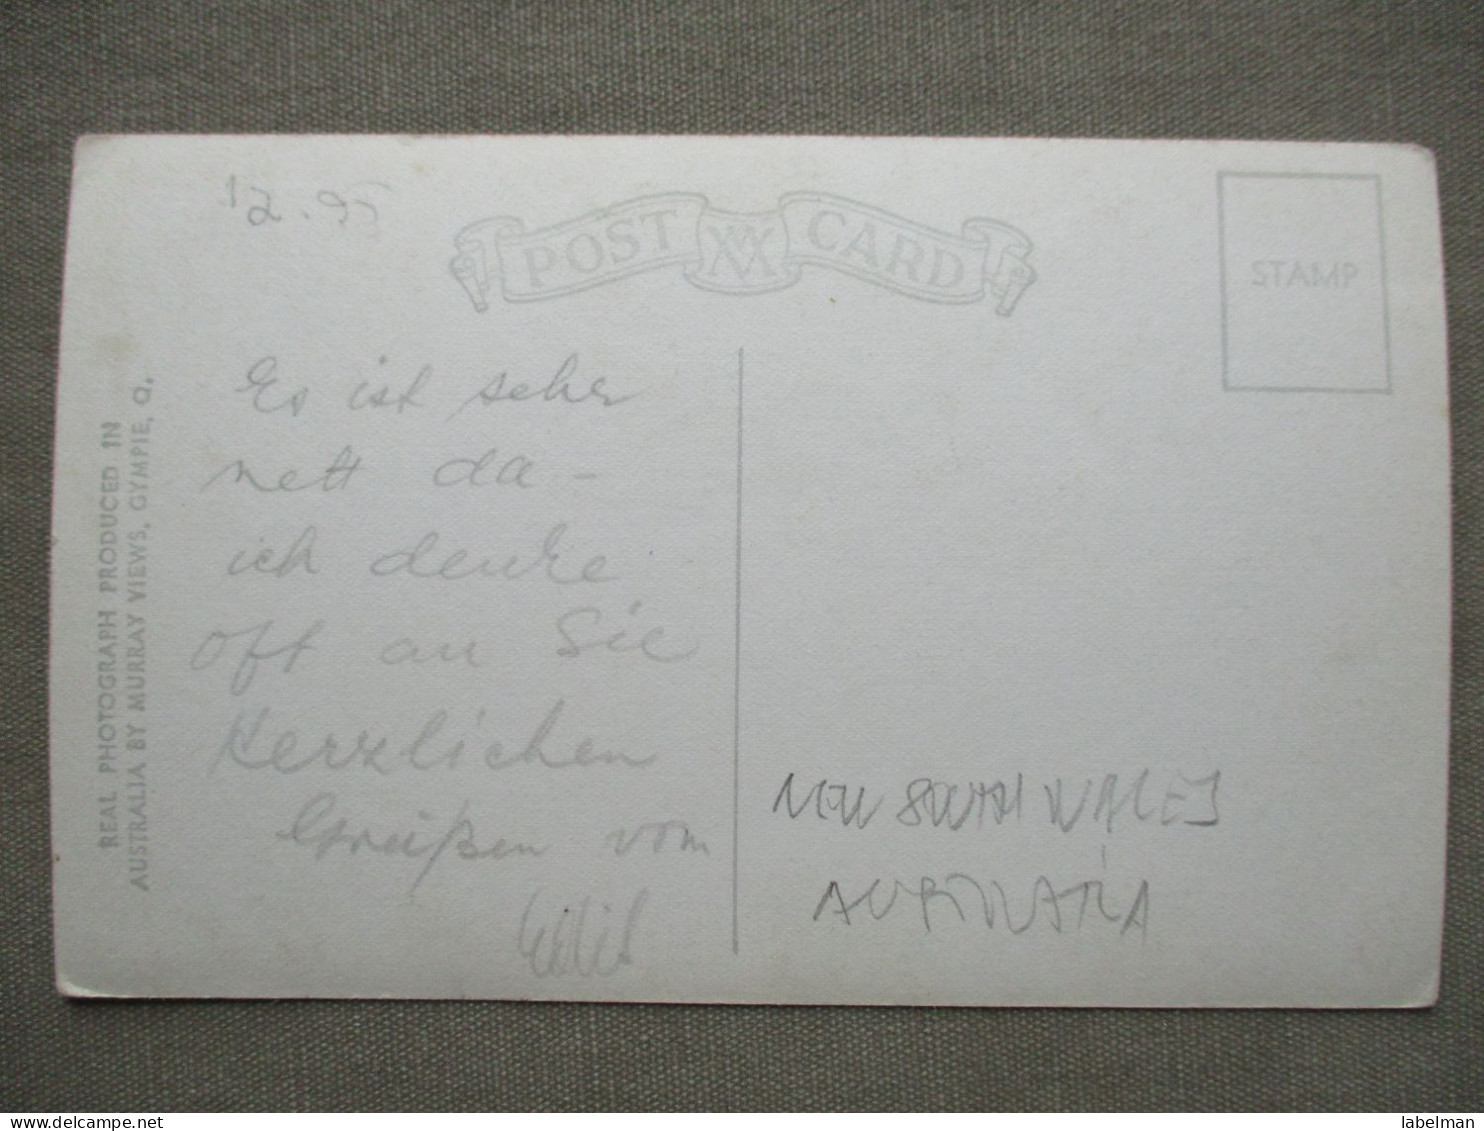 12.95
POST CARD
STAMP
REAL PHOTOGRAPH PRODUCED IN
AUSTRALIA BY MURRAY VIEWS, GYMPIE, Q.
Es ist sehr
nett da –
ich denke
oft an Sie
Herzlichen
Grüßen vom
NEW SOUTH WALES
AUSTRALIA
labelman